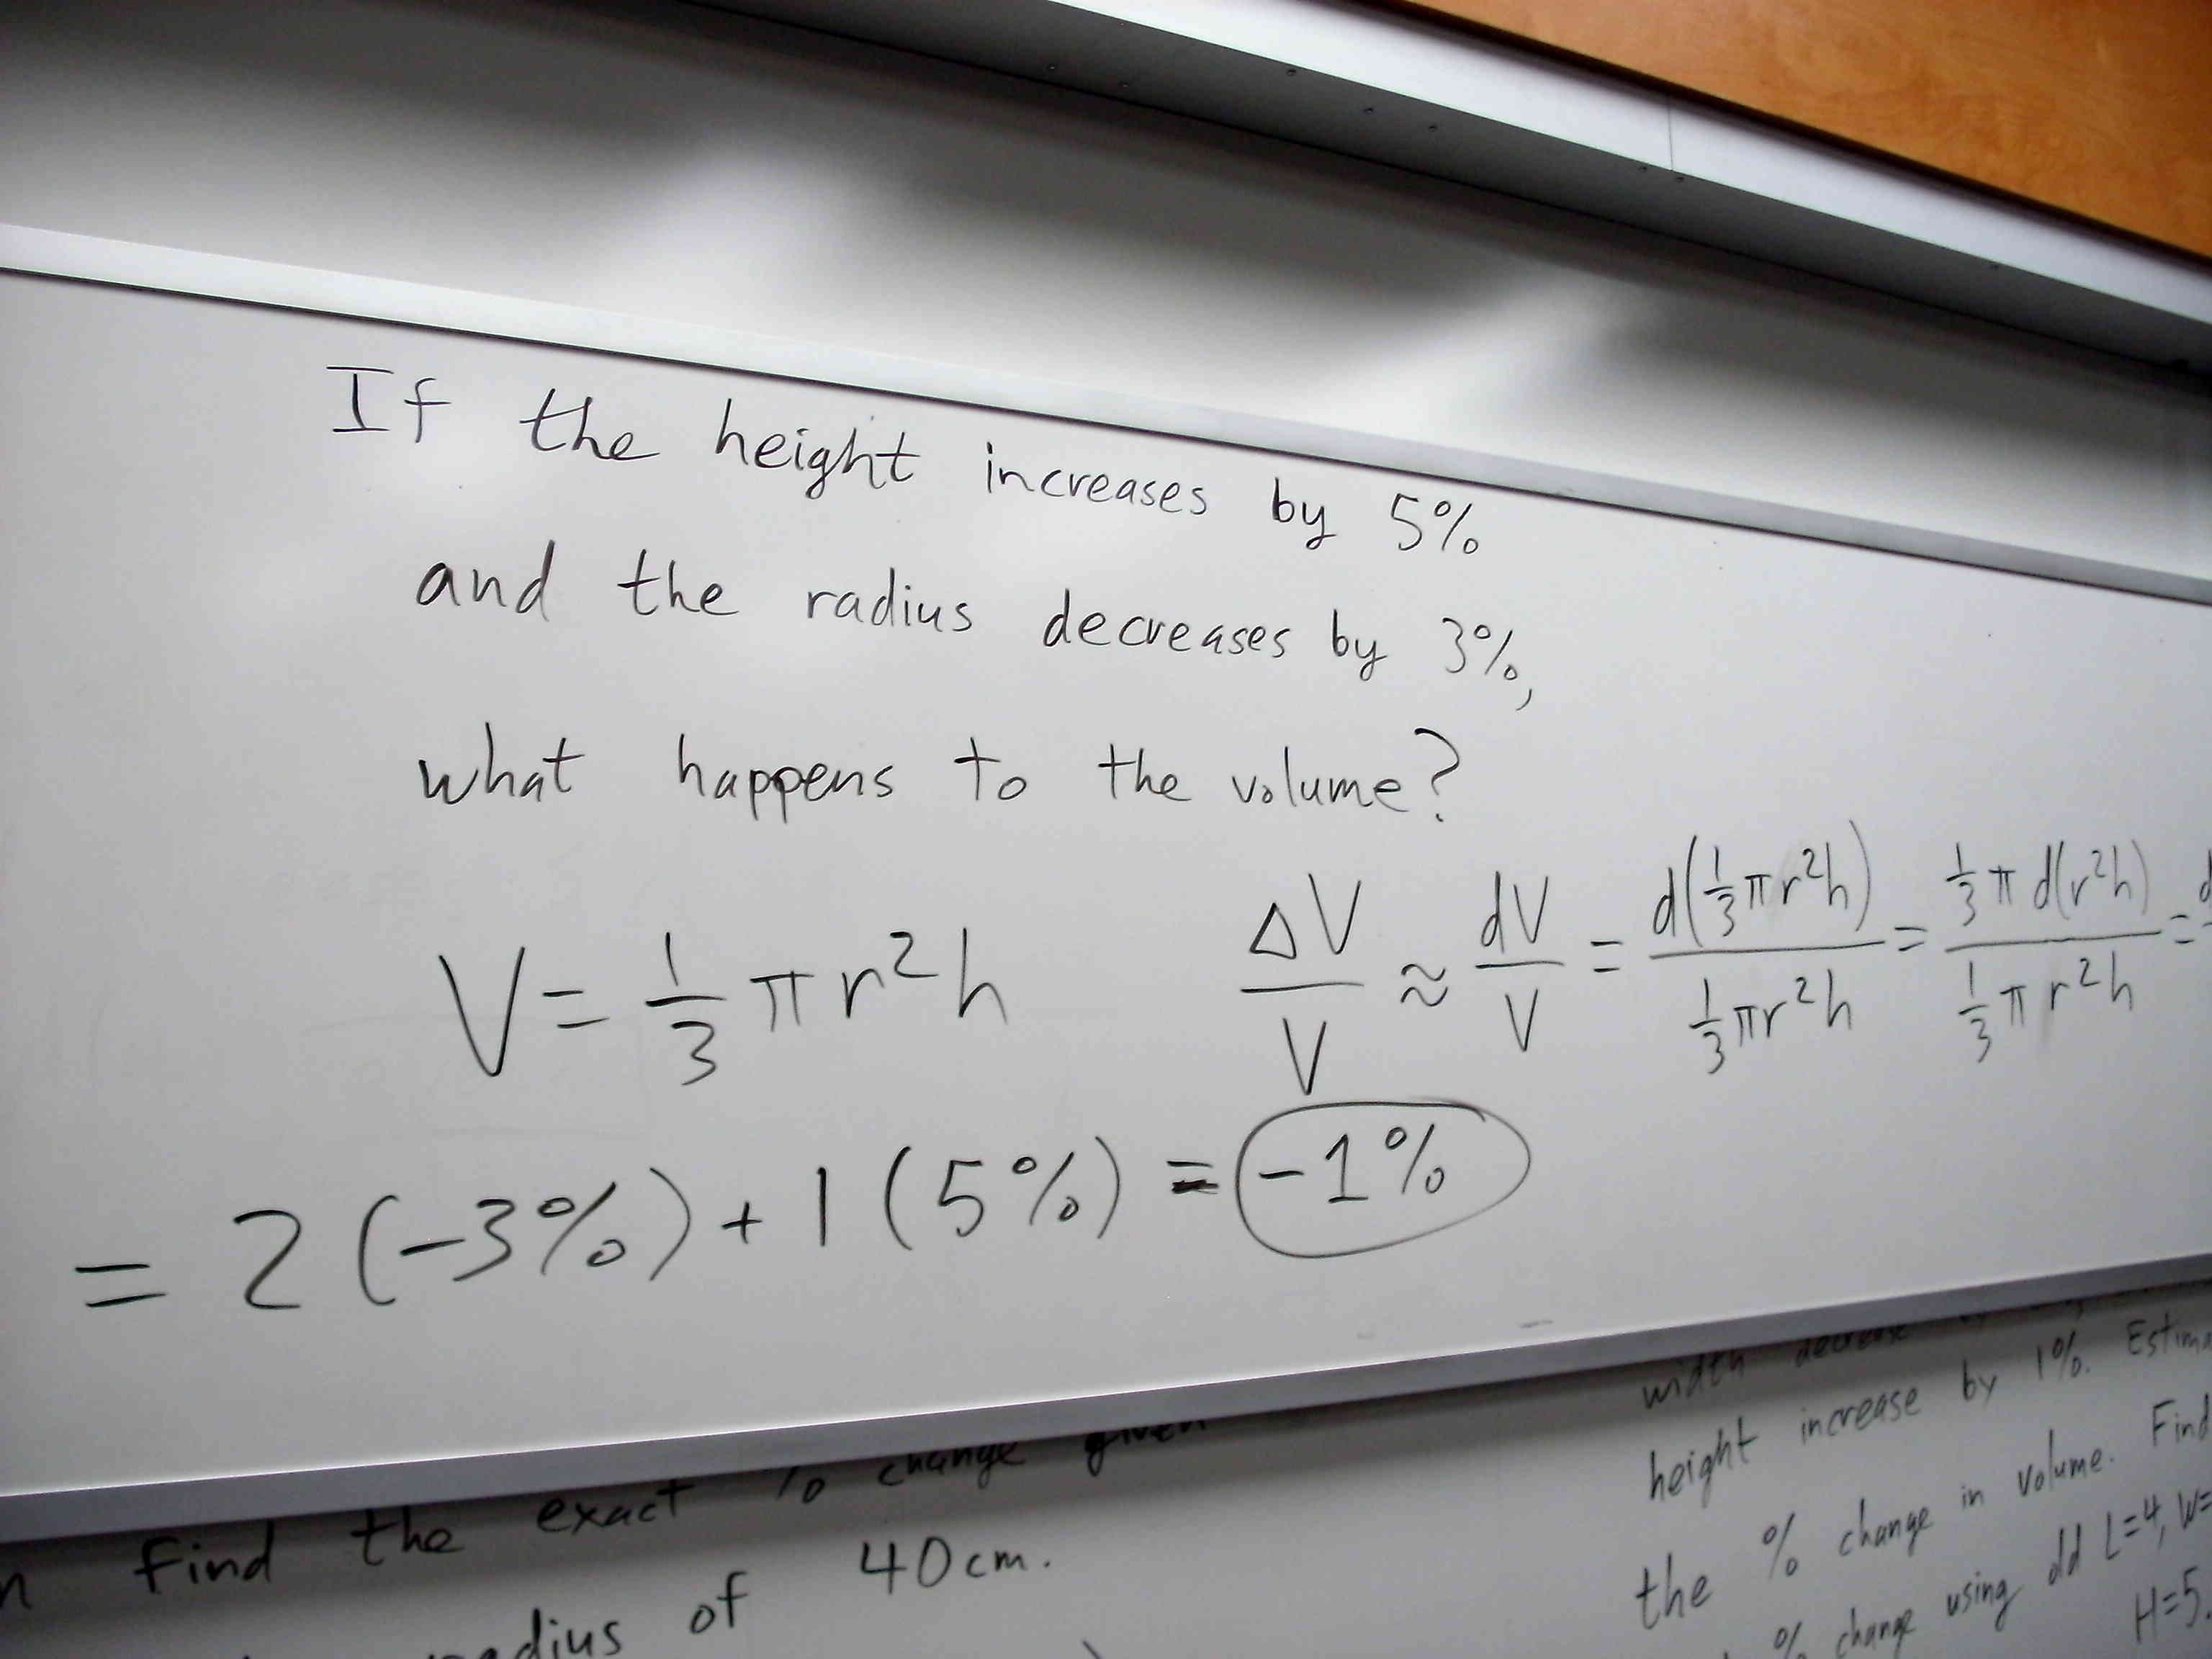 If the height increases by 5%
and the radius decreases by 3%,
what happens to the volume?
V = 1/3 πr²h   ΔV/V ≈ dV/V = d(1/3 πr²h)/(1/3 πr²h) = 1/3 π d(r²h)/(1/3 πr²h) =
= 2(-3%) + 1(5%) = -1%
Find the exact % change given
radius of 40cm.
width decrease
height increase by 1%.
the % change in volume. Find
% change using old L=4, W=
H=5.